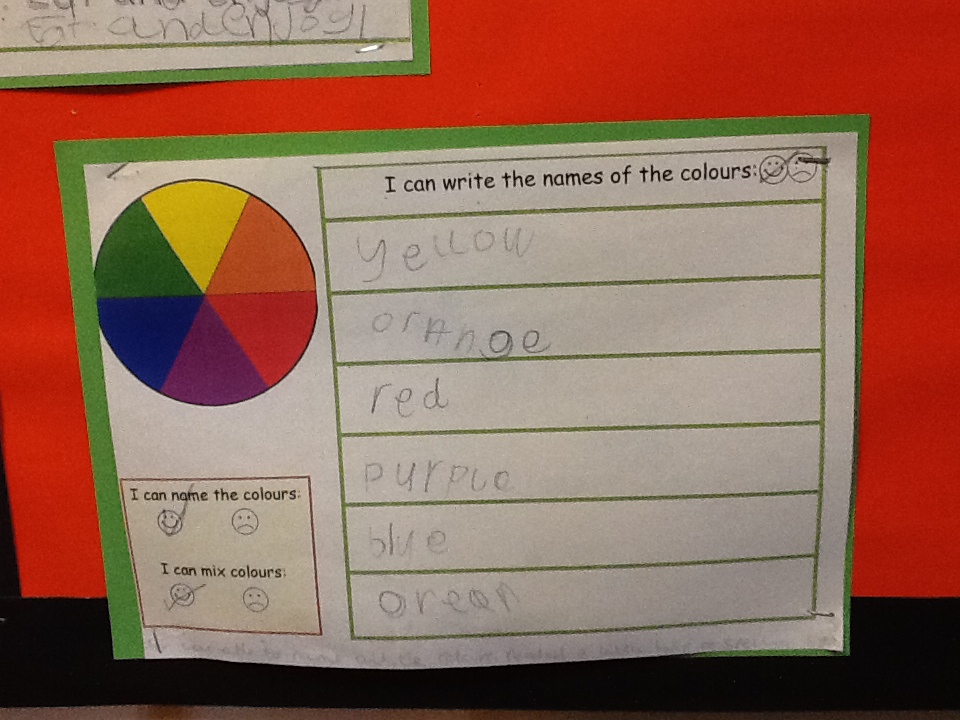 Eat and enjoy!
I can write the names of the colours:
yellow
orAnge
red
purple
blue
green
I can name the colours:
I can mix colours: